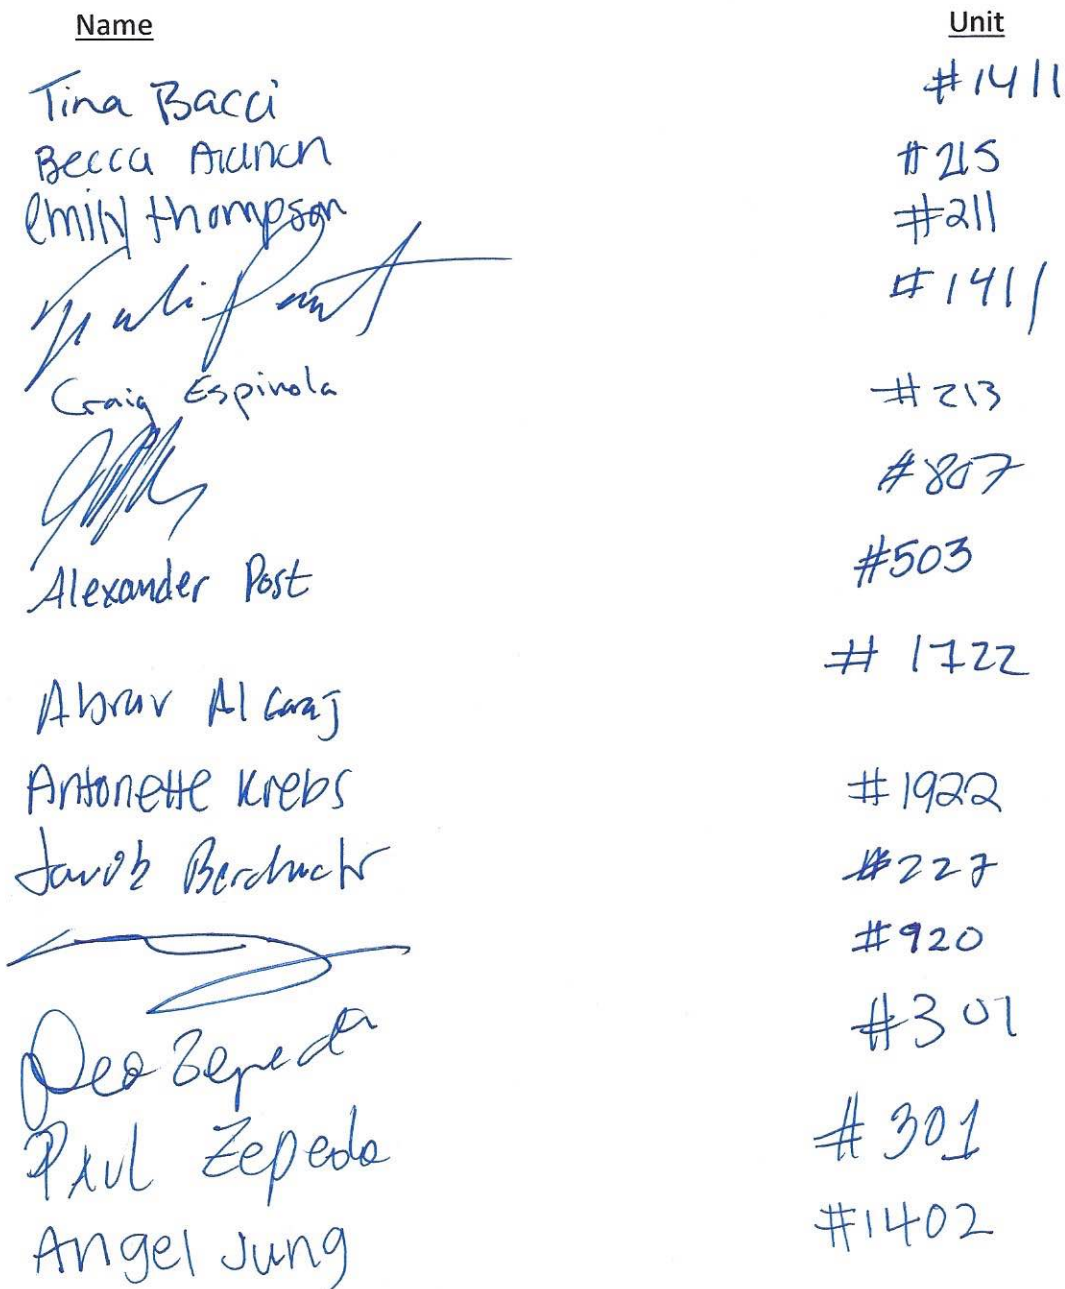 Name Unit
Tina Bacci #1411
Becca #215
emily thompson #211
#1411
Craig Espinola #213
#807
Alexander Post #503
# 1722
Abrar
Antonette Krebs #1922
#227
#920
Zepeda #301
Paul Zepeda #301
Angel Jung #1402